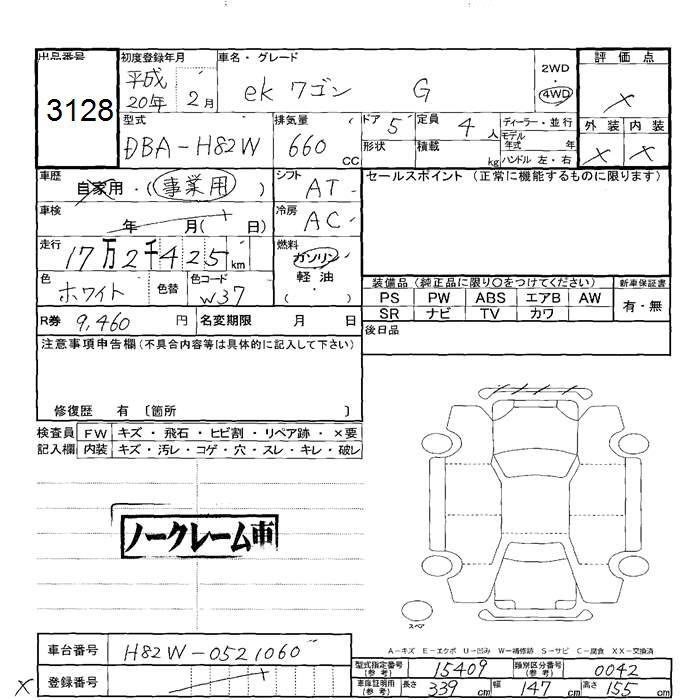 出品番号
3128
初度登録年月 車名・グレード
平成
20年 2月 ek ワゴン G
2WD
4WD
評価点
×
外装 内装
× ×
型式 排気量 ドア 定員 ディーラー・並行
DBA-H82W 660 cc 5 4人 モデル年式 年
形状 積載 kg ハンドル 左・右
車歴 自家用・(事業用) シフト AT
車検 年 月( 日) 冷房 AC
走行 17万2千425km 燃料 ガソリン
軽油
( ・ )
色 ホワイト 色替 色コード W37
R券 9,460円 名変期限 月 日
セールスポイント(正常に機能するものに限ります)
装備品(純正品に限り○をつけてください) 新車保証書
PS PW ABS エアB AW 有・無
SR ナビ TV カワ
後日品
注意事項申告欄(不具合内容等は具体的に記入して下さい)
修復歴 有 〔箇所 〕
検査員 FW キズ・飛石・ヒビ割・リペア跡・×要
記入欄 内装 キズ・汚レ・コゲ・穴・スレ・キレ・破レ
ノークレーム車
スペア
A-キズ E-エクボ U-凹み W-補修跡 S-サビ C-腐食 XX-交換済
車台番号 H82W-0521060
× 登録番号
型式指定番号(参考) 15409 類別区分番号(参考) 0042
車庫証明用(参考) 長さ 339cm 幅 147cm 高さ 155cm